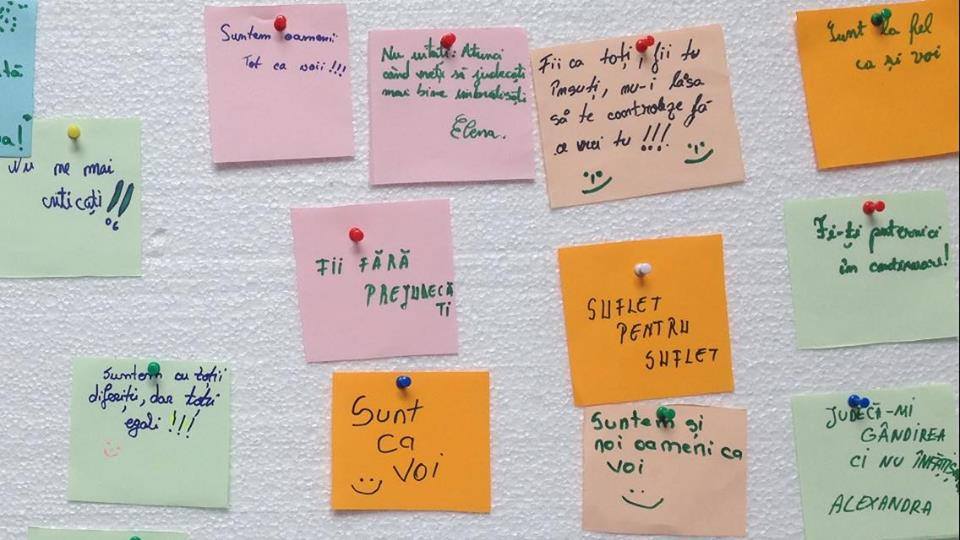 tă
a!
Suntem oamenii
Tot ca voii!!!
Nu uitați: Atunci
când vreți să judecați
mai bine îmbrățișați
Elena.
Fii ca toți, fii tu
însuți, nu-i lăsa
să te controleze fă
ce vrei tu!!!
Sunt la fel
ca și voi
Nu ne mai
criticați!!
Fii FĂRĂ
PREJUDECĂ
ȚI
SUFLET
PENTRU
SUFLET
Fi-ți puternici
în continuare!
Suntem cu toții
diferiți, dar toții
egali!!!
Sunt
ca
voi
Suntem și
noi oameni ca
voi
JUDECĂ-MI
GÂNDIREA
CI NU ÎNFĂȚIȘA
ALEXANDRA